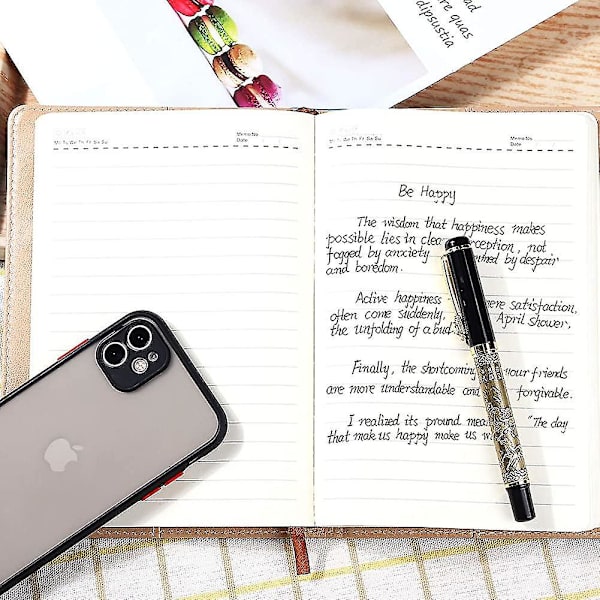 ore quas
dipsustia
Memo No.
Date
Mo Tu We Th Fr Sa Su
Memo No.
Date
Mo Tu We Th Fr Sa Su
Be Happy
The wisdom that happiness makes
possible lies in clear ception, not
fogged by anxiety wned by despair
and boredom.
Active happiness ere satisfaction,
often come suddenly, April Shower,
the unfolding of a bud
Finally, the shortcoming your friends
are more understandable an forgivable.
I realized its pround mea "The day
that mak us happy make us wi